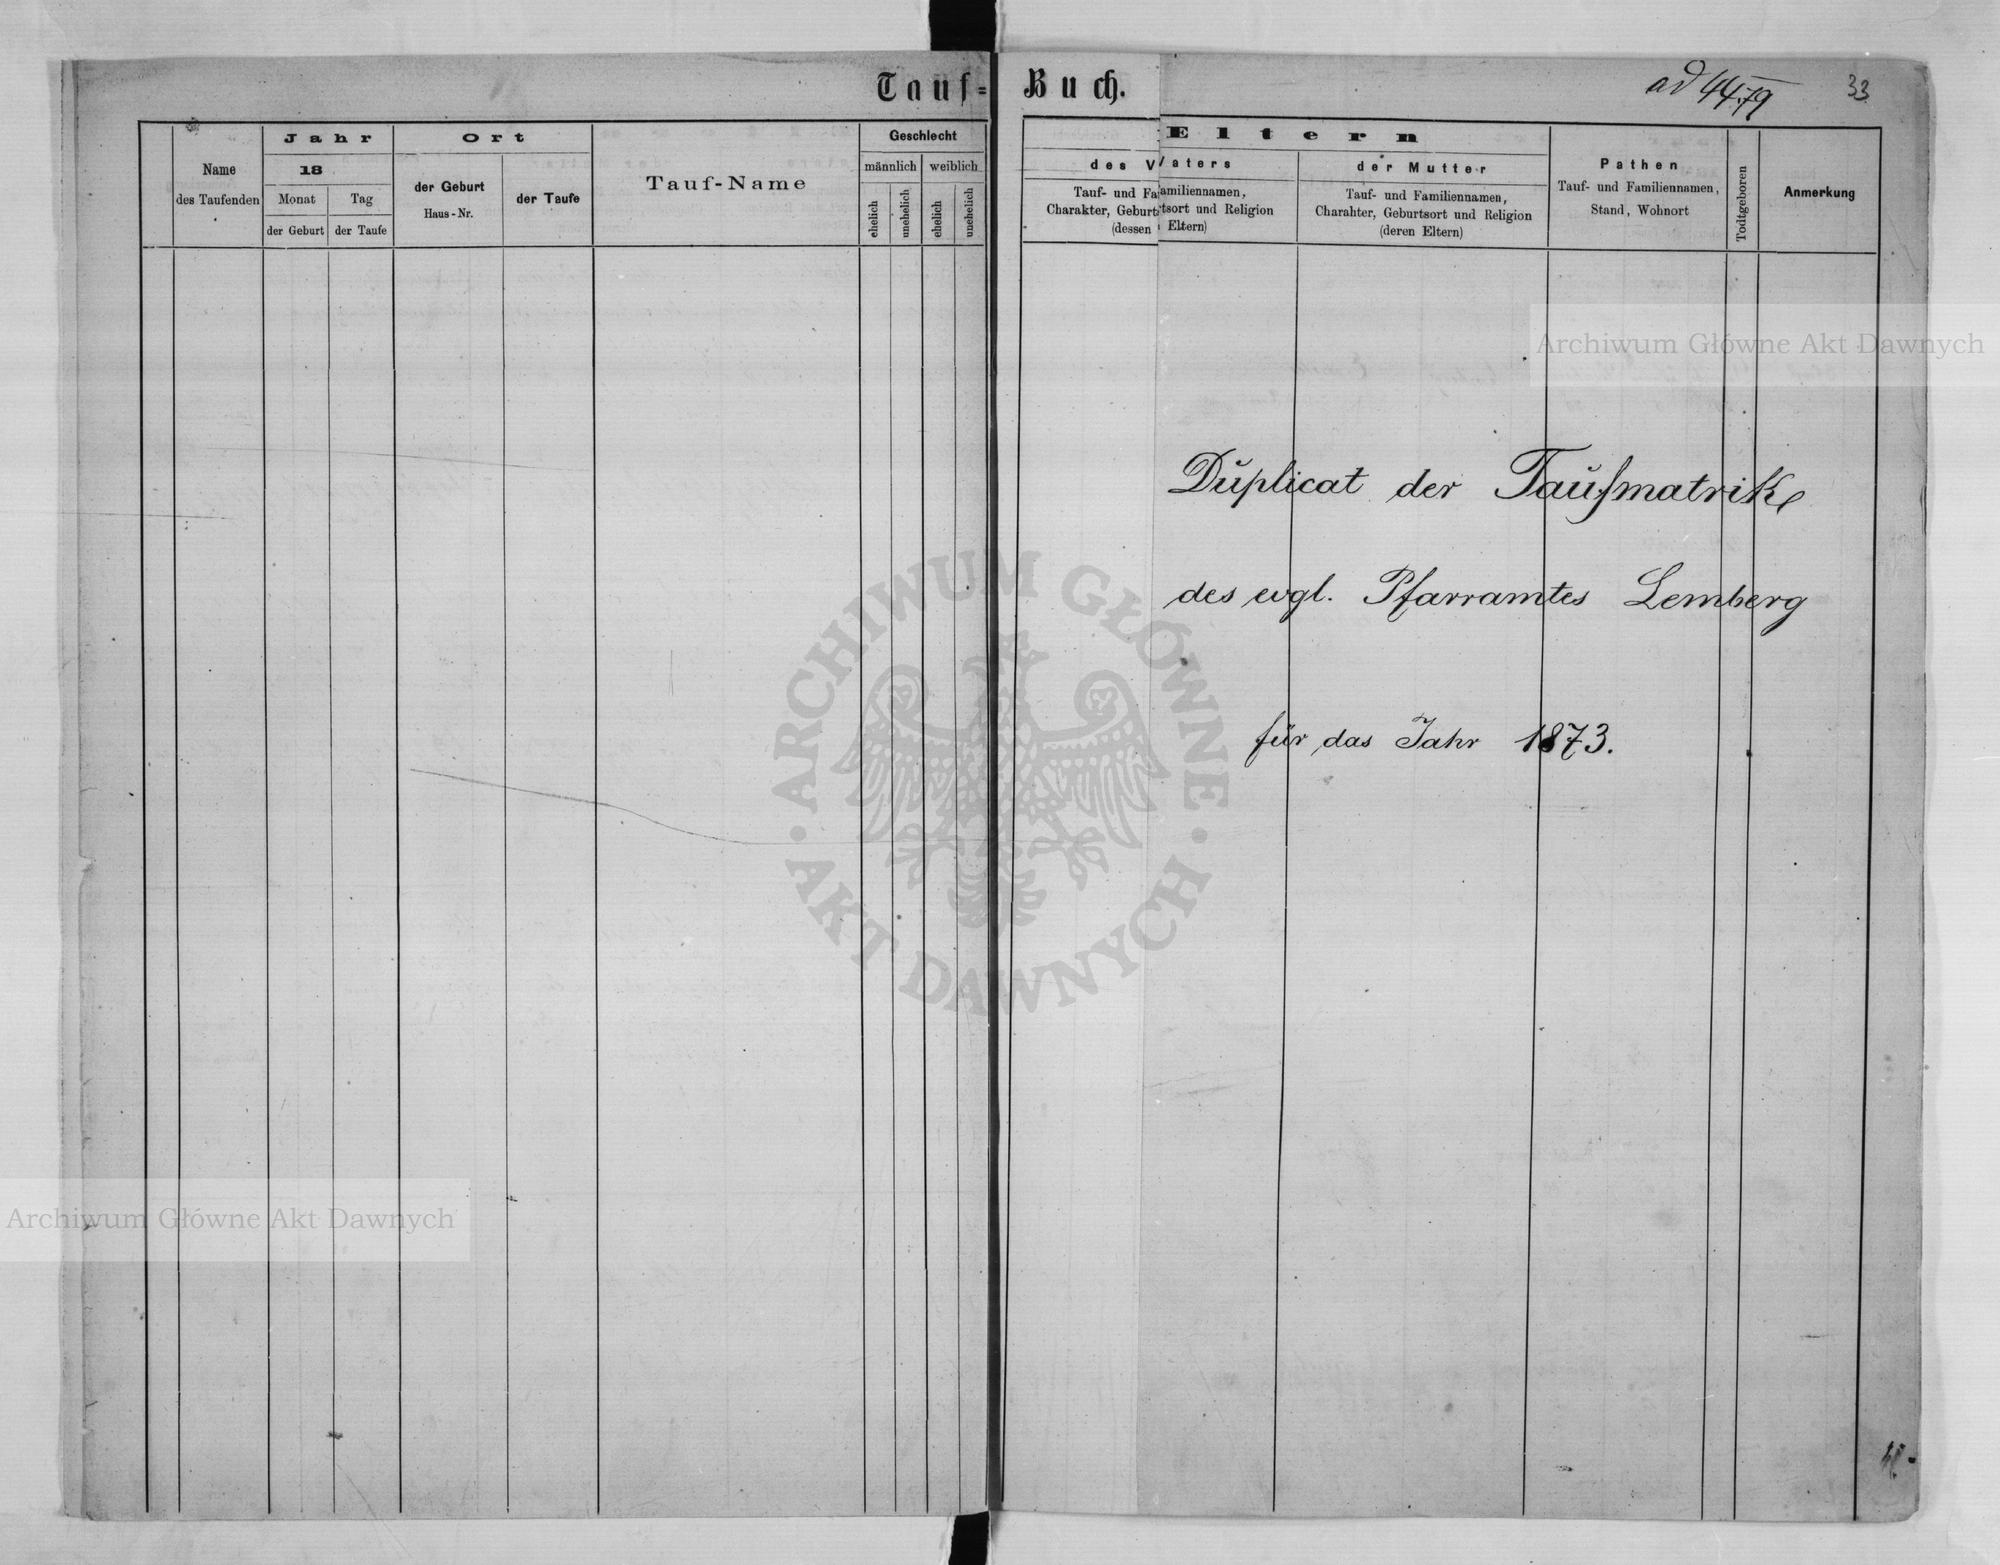 Tauf-Buch.
ad 44.79
33
Name
des Taufenden
Jahr
18
Monat
der Geburt
Tag
der Taufe
Ort
der Geburt
Haus-Nr.
der Taufe
Tauf-Name
Geschlecht
männlich
weiblich
ehelich
unehelich
ehelich
unehelich
Eltern
des Vaters
Tauf- und Familiennamen,
Charakter, Geburtsort und Religion
(dessen Eltern)
der Mutter
Tauf- und Familiennamen,
Charahter, Geburtsort und Religion
(deren Eltern)
Pathen
Tauf- und Familiennamen,
Stand, Wohnort
Todtgeboren
Anmerkung
Duplicat der Taufmatrike
des evgl. Pfarramtes Lemberg
für das Jahr 1873.
Archiwum Główne Akt Dawnych
ARCHIWUM GŁÓWNE
AKT DAWNYCH
Archiwum Główne Akt Dawnych